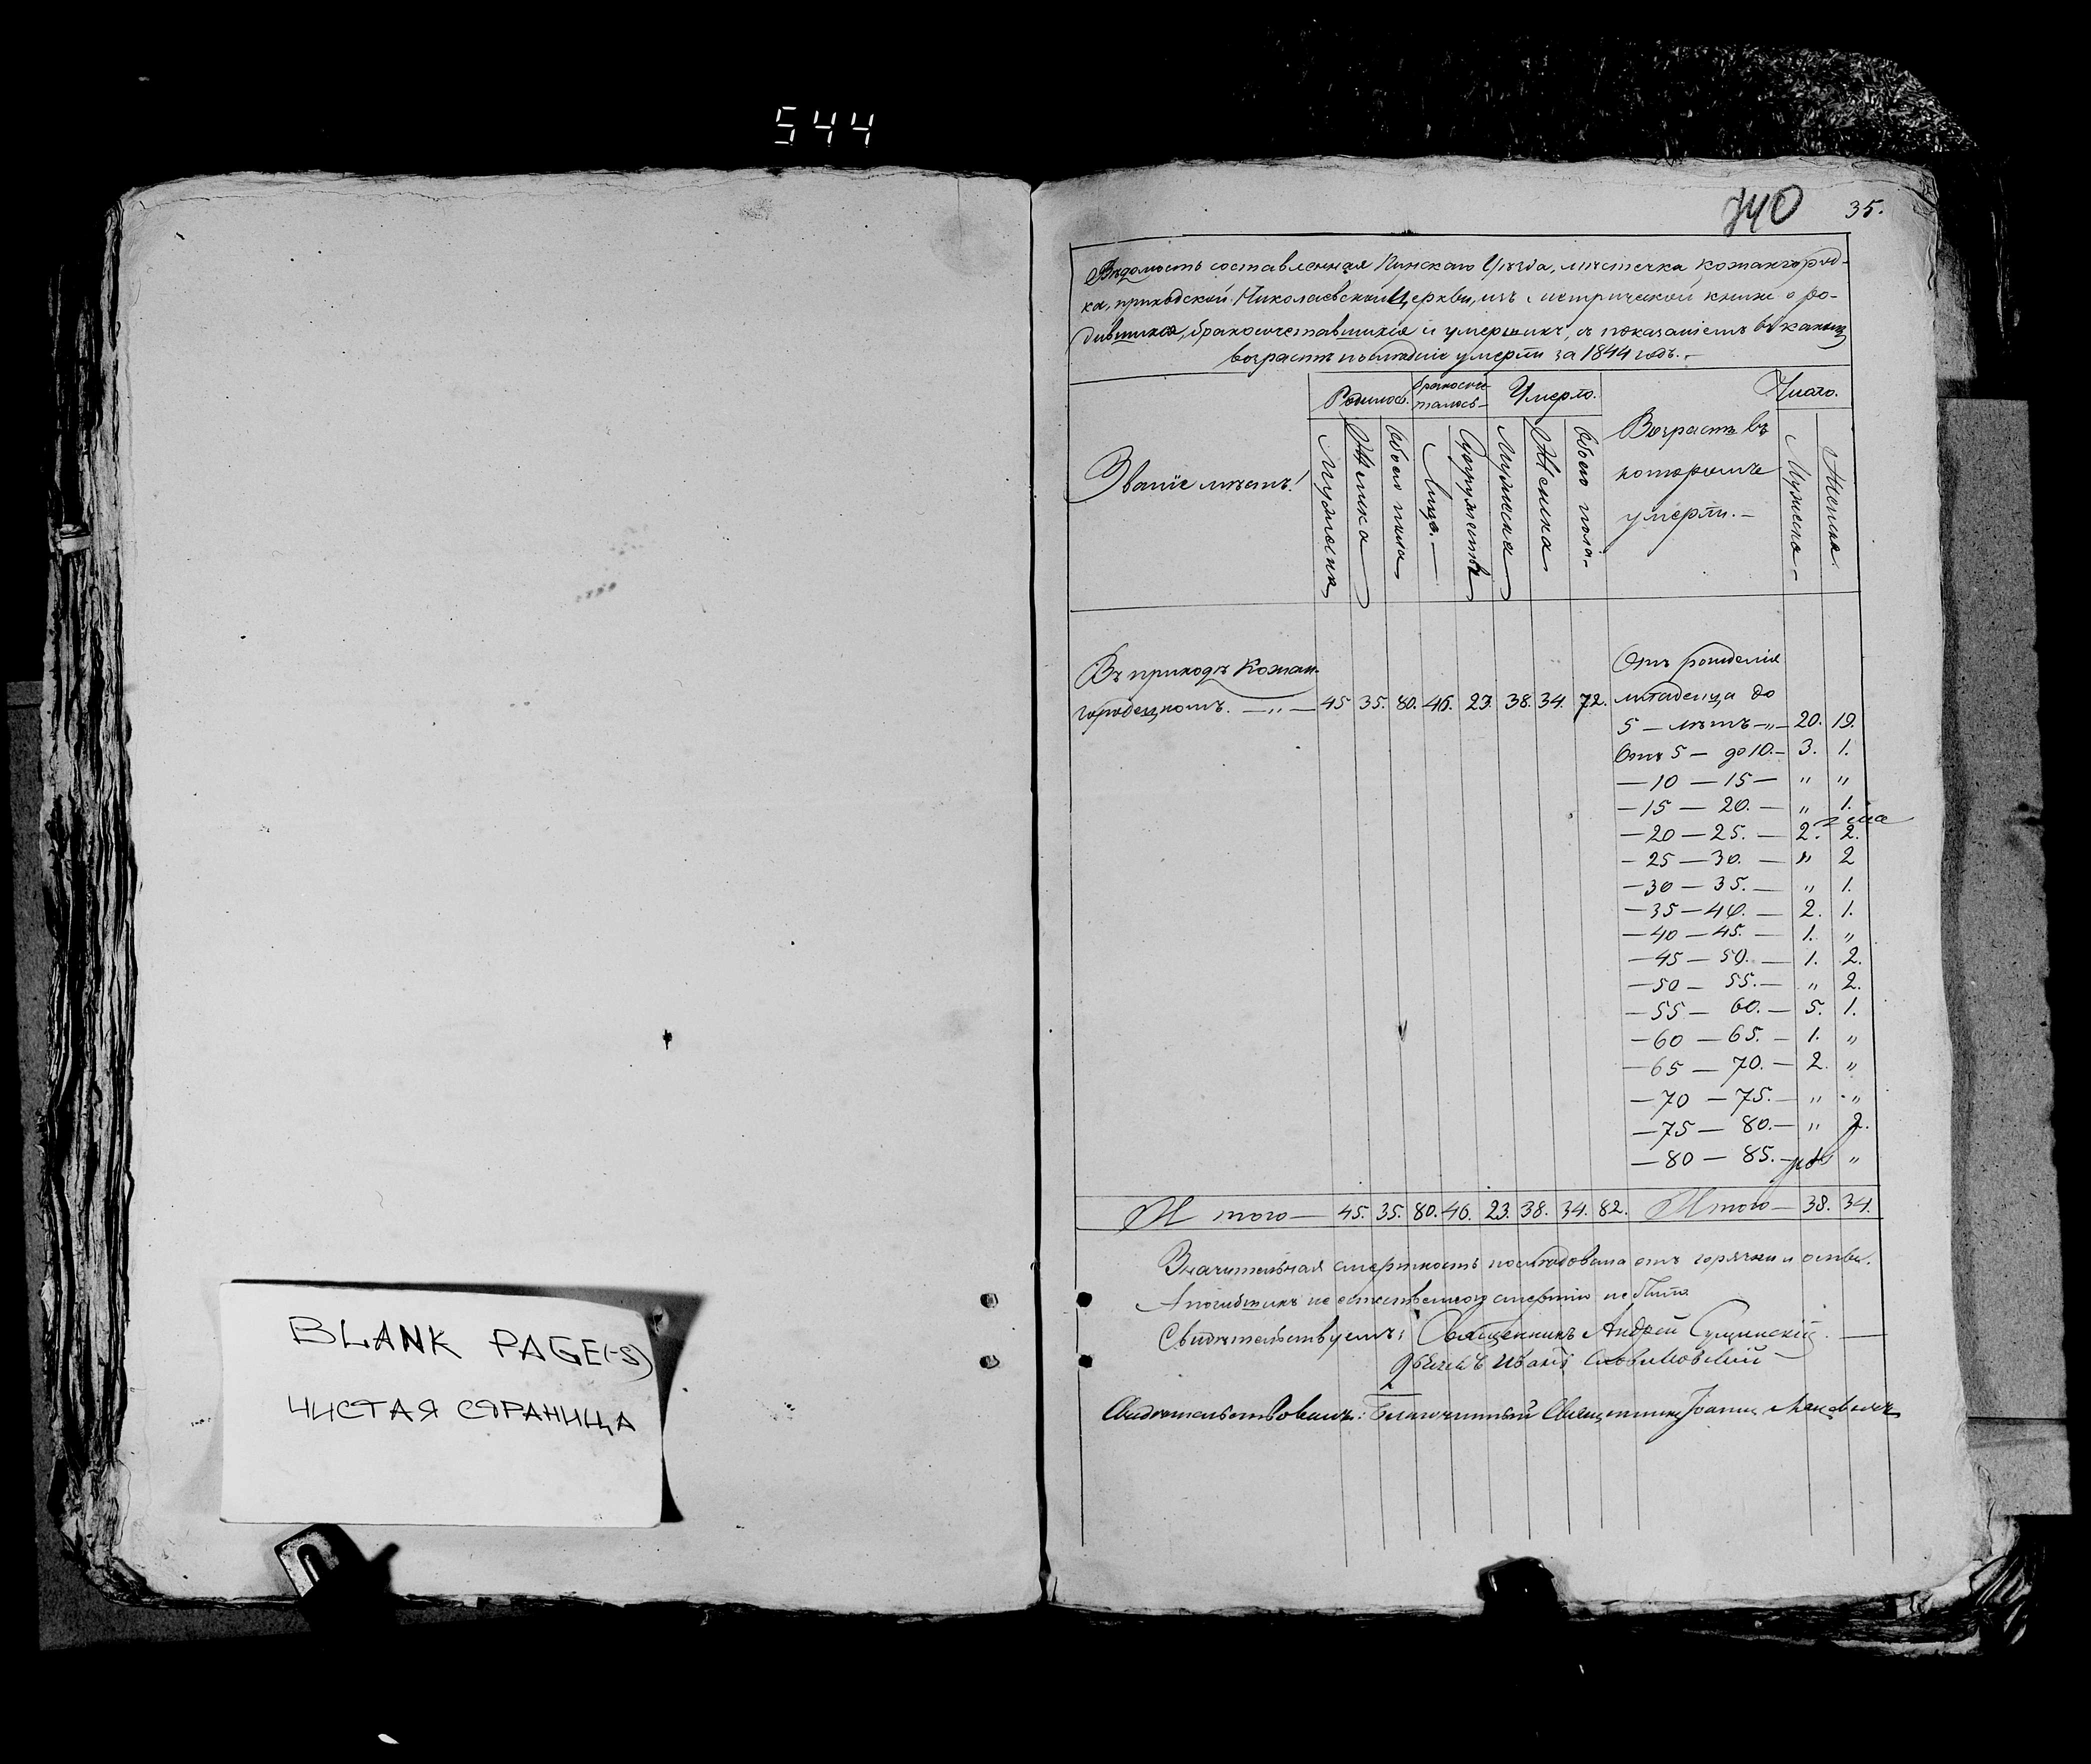 544
740 35.
Вѣдомость составленная Пинскаго Уѣзда, мѣстечка Кожангород-
ка, приходской Николаевской Церкви, изъ метрической книги о ро-
дившихся, бракосочетавшихся и умершихъ, съ показаніемъ въ какомъ
возрастѣ послѣдніе умерли за 1844 годъ.-
Званіе мѣстъ.
Родилось.
бракосоче-
талось-
Умерло.
Возрастъ въ
которомъ
умерли.-
Число.
Мужеска
Женска
Обоего пола
Лицъ.-
Супружествъ
Мужеска
Женска
Обоего пола-
Мужеска-
Женска.
Въ приходѣ Кожан-
городецкомъ. — „ — 45 35. 80. 46. 23. 38. 34. 72.
Отъ рожденія
младенца до
5 — лѣтъ — „ — 20. 19.
Отъ 5 — до 10. — 3. 1.
— 10 — 15 — „ „
— 15 — 20. — „ 1.
— 20 — 25. — 2. 2.
— 25 — 30. — „ 2
— 30 — 35. — „ 1.
— 35 — 40. — 2. 1.
— 40 — 45. — 1. „
— 45 — 50. — 1. 2.
— 50 — 55. — „ 2.
— 55 — 60. — 5. 1.
— 60 — 65. — 1. „
— 65 — 70. — 2. „
— 70 — 75. — „ „
— 75 — 80. — „ 2.
— 80 — 85. — „
Итого — 45. 35. 80. 46. 23. 38. 34. 82. Итого — 38. 34.
Значительная смертность послѣдовала отъ горячки и оспы.
А погибшихъ не естественною смертію не было
Свидѣтельствуемъ: Священникъ Андрей Сущинскій. —
Дьячекъ Иванъ
Свидѣтельствовалъ: Благочинный Священникъ Іоаннъ
BLANK PAGE(-S)
ЧИСТАЯ СТРАНИЦА